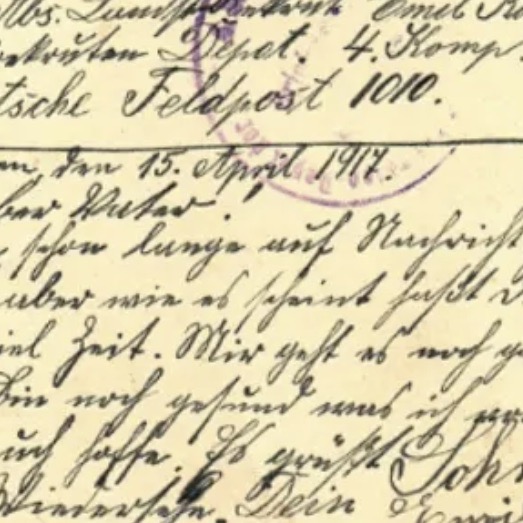 Abs. Landst. Rekrut Emil
Rekruten Depot. 4. Komp.
tsche Feldpost 1010.
en, den 15. April 1917.
ber Vater!
schon lange auf Nachricht
aber wie es scheint haßt d
iel Zeit. Mir geht es noch g
Bin noch gesund was ich vo
uch hoffe. Es grüßt
Wiedersehn. Dein Sohn